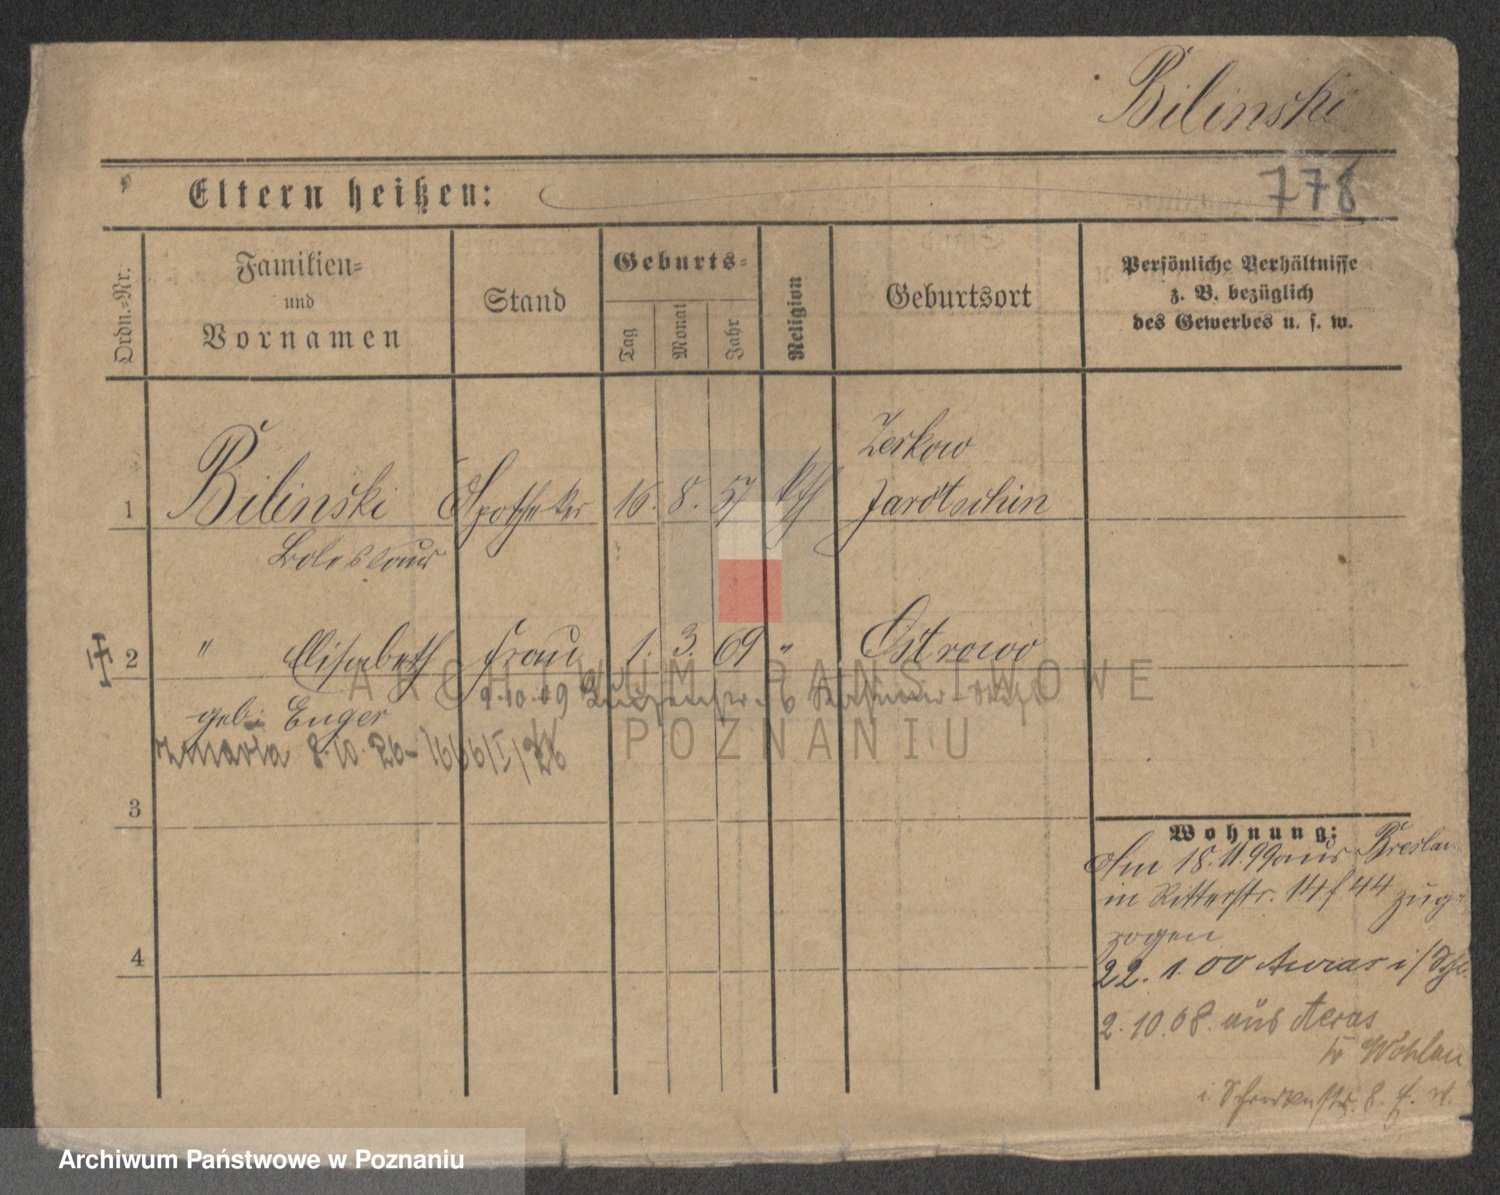 Bilinski
Eltern heißen:
778
Ordn.-Nr.
Familien-
und
Vornamen
Stand
Geburts-
Tag
Monat
Jahr
Religion
Geburtsort
Persönliche Verhältnisse
z. B. bezüglich
des Gewerbes u. s. w.
Zerkow
1 Bilinski Apotheker 16. 8. 57 kth Jarotschin
Boleslaus
2 " Elisabeth Frau 1. 3. 69 " Ostrowo
9.10.09
geb. Enger
zmarła 8.10.26 - 1666/I/26
3
4
Wohnung:
Am 18.11.99 aus Breslau
in Ritterstr. 14 f 44 zuge-
zogen
22. 1. 00 Auras i/Schl.
2.10.08. aus Auras
Wohlau
ARCHIWUM PAŃSTWOWE
W POZNANIU
Archiwum Państwowe w Poznaniu